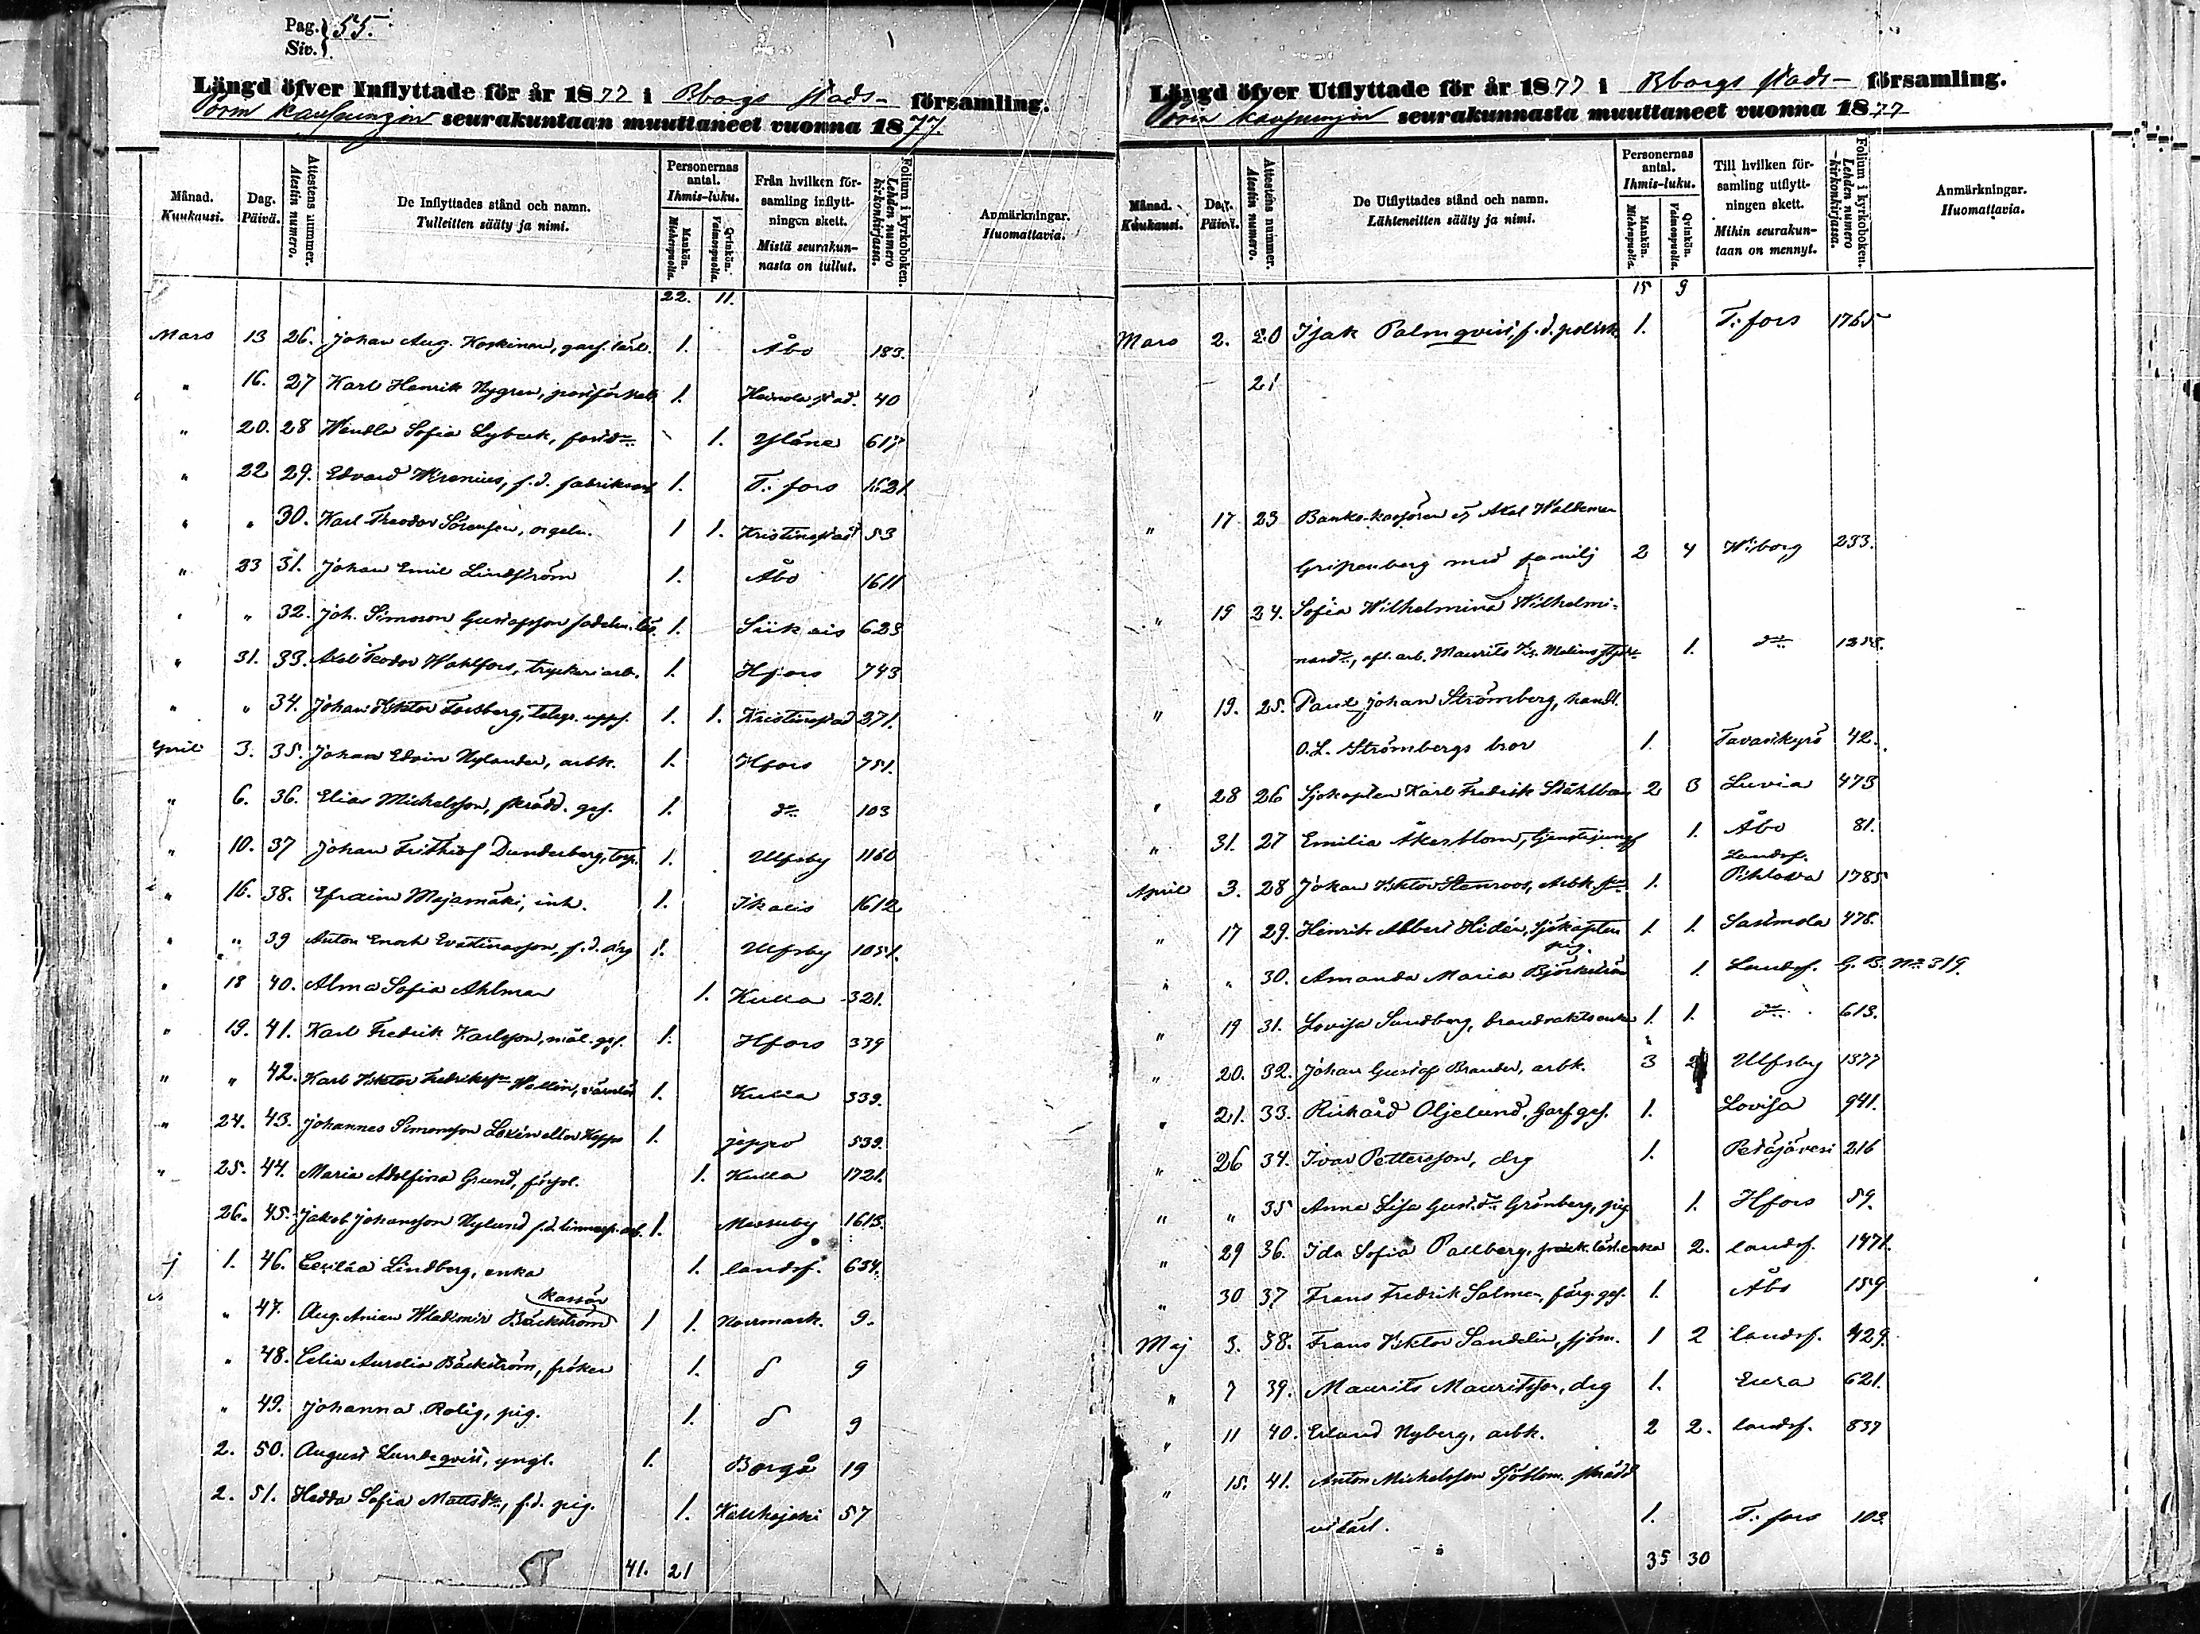 Pag. Siv. } 55.
Längd öfver Inflyttade för år 1877 i Bborgs stads- församling.
Porin kaupungin seurakuntaan muuttaneet vuonna 1877.
Månad. Kuukausi. Dag. Päivä. Attestens nummer. Atestin numero. De Inflyttades stånd och namn. Tulleitten sääty ja nimi. Personernas antal. Ihmis-luku. Mankön. Miehenpuolia. Qvinkön. Vaimonpuolia. Från hvilken församling inflyttningen skett. Mistä seurakunnasta on tullut. Folium i kyrkoboken. Lehden numero kirkonkirjassa. Anmärkningar. Huomattavia.
22. 11.
Mars 13 26. Johan Aug. Koskinen, garf. lärl. 1. Åbo 183.
" 16. 27 Karl Henrik Nygren, 1. Heinola stad. 40
" 20. 28 Wendla Sofia Lybeck, 1. Yläne 617
" 22 29. Edvard Wirenius, f.d. 1. T:fors 1621.
" " 30. Karl Theodor Sörensen, orgeln. 1 1. Kristinestad 53
" 23 31. Johan Emil Lindström 1. Åbo 1611
" " 32. Joh. Simsson Gustafsson 1. Siikais 623
" 31. 33. Axel Teodor Wahlfors, tryckeri arb. 1. Hfors 743
" " 34. Johan Viktor Forsberg, telegr. upps. 1. 1. Kristinestad 371.
April 3. 35. Johan Edvin Nylander, arbk. 1. Hfors 751.
" 6. 36. Elias Michelsson, skrädd. ges. 1. d:o 103
" 10. 37 Johan Frithiof Dunderberg, torp. 1. Ulfsby 1160
" 16. 38. Efraim Majamäki, inh. 1. Ikalis 1612
" " 39 Anton Enoch f.d. drg 1. Ulfsby 1051.
" 18 40. Alma Sofia Ahlman 1. Kulla 321.
" 19. 41. Karl Fredrik Karlsson, mål. ges. 1. Hfors 339
" " 42. Karl Viktor Fredriksson Wallin, 1. Kulla 339.
" 24. 43. Johannes Simonsson eller 1. Jeppo 539.
" 25. 44. Maria Adolfina Grund, 1. Kulla 1721.
26. 45. Jakob Johansson Nylund f.d. 1. Messuby 1613.
1. 46. Cecilia Lindberg, enka 1. landsf. 634.
kassör
" 47. Aug. Anian Wladimir Bäckström 1 1. Norrmark. 9.
" 48. Celia Aurelia Bäckström, fröken 1. d 9
" 49. Johanna Rolig, pig. 1. d 9
2. 50. August Lundeqvist, yngl. 1. Borgå 19
2. 51. Hedda Sofia Mattsd:r, f.d. pig. 1. 57
41. 21
Längd öfver Utflyttade för år 1877 i Bborgs stads- församling.
Porin kaupungin seurakunnasta muuttaneet vuonna 1877
Månad. Kuukausi. Dag. Päivä. Attestens nummer. Atestin numero. De Utflyttades stånd och namn. Lähteneitten sääty ja nimi. Personernas antal. Ihmis-luku. Mankön. Miehenpuolia. Qvinkön. Vaimonpuolia. Till hvilken församling utflyttningen skett. Mihin seurakuntaan on mennyt. Folium i kyrkoboken. Lehden numero kirkonkirjassa. Anmärkningar. Huomattavia.
15 9
Mars 2. 20 Isak Palmqvist, f.d. 1. T:fors 1765
21
" 17 23 Banko-kassören Axel Waldemar
Gripenberg med familj 2 4 Wiborg 233.
" 19 24. Sofia Wilhelmina Wilhelmi-
Maurits 1. d:o
" 19. 25. Paul Johan Strömberg, handl.
O.L. Strömbergs bror 1. Tavastkyrö 42.
" 28 26 Sjökapten Karl Fredrik Ståhlbom 2 3 Luvia 473
" 31. 27 Emilia Åkerblom, 1. Åbo 81.
Landsf.
April 3. 28 Johan Viktor Stenroos, Arbk. 1. Pihlava 1785
" 17 29. Henrik Albert Hidén, Sjökapten 1. 1. Sastmola 478.
pig.
" " 30. Amanda Maria Björkström 1. Landsf. G. B. No 319.
" 19 31. Lovisa Sandberg, brandvaktsenka 1. 1. d:o 613.
" 20. 32. Johan Gustaf Brander, arbk. 3 2 Ulfsby 1377
" 21. 33. Rickard Oljelund, Garf. ges. 1. Lovisa 941.
" 26 34. Ivar Pettersson, drg 1. Petäjävesi 216
" " 35 Anna Lisa Gust.d:r Grönberg, pig 1. Hfors 59.
" 29 36. Ida Sofia Pallberg, enka 2. landsf. 1471.
" 30 37 Frans Fredrik Salmen, färg. ges. 1. Åbo 159
Maj 3. 38. Frans Viktor Sandelin, sjöm. 1 2 landsf. 429.
" 7 39. Maurits Mauritsson, drg 1. Eura 621.
" 11 40. Erland Nyberg, arbk. 2 2. landsf. 837
" 15. 41. Anton Michelsson Sjöblom, skrädd
1. T:fors 103.
35 30